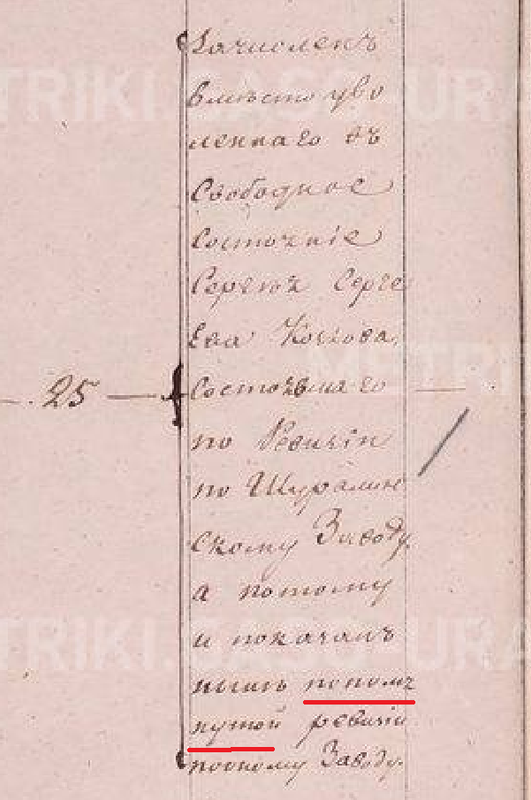 Зачисленъ
вмѣсто уво
леннаго въ
Свободное
Состоянiе
Сергѣя Серге
ева
25 Состоявшаго
по Ревизiи
по Шуралин
скому Заводу
а потому
и показанъ
нынѣ попомя
нутой ревизiи
по оному Заводу.